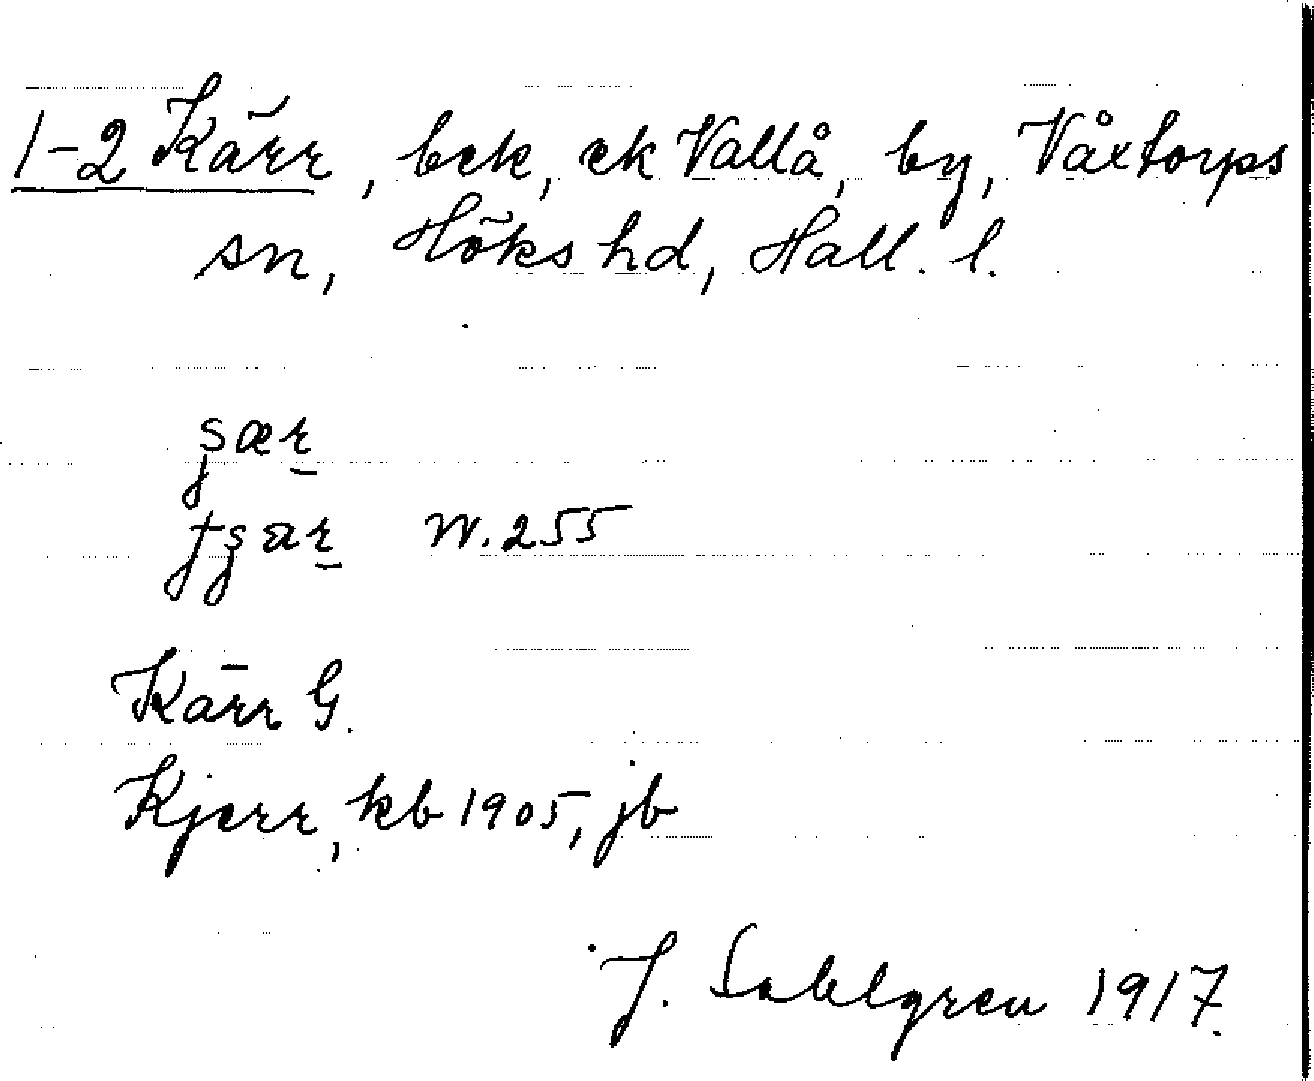 1-2 Kärr, bck, ck Vallå, by, Våxtorps
sn, Höks hd, Hall. l.
W. 255
Kärr G.
Kjerr, kb 1905, jb
J. Sahlgren 1917.